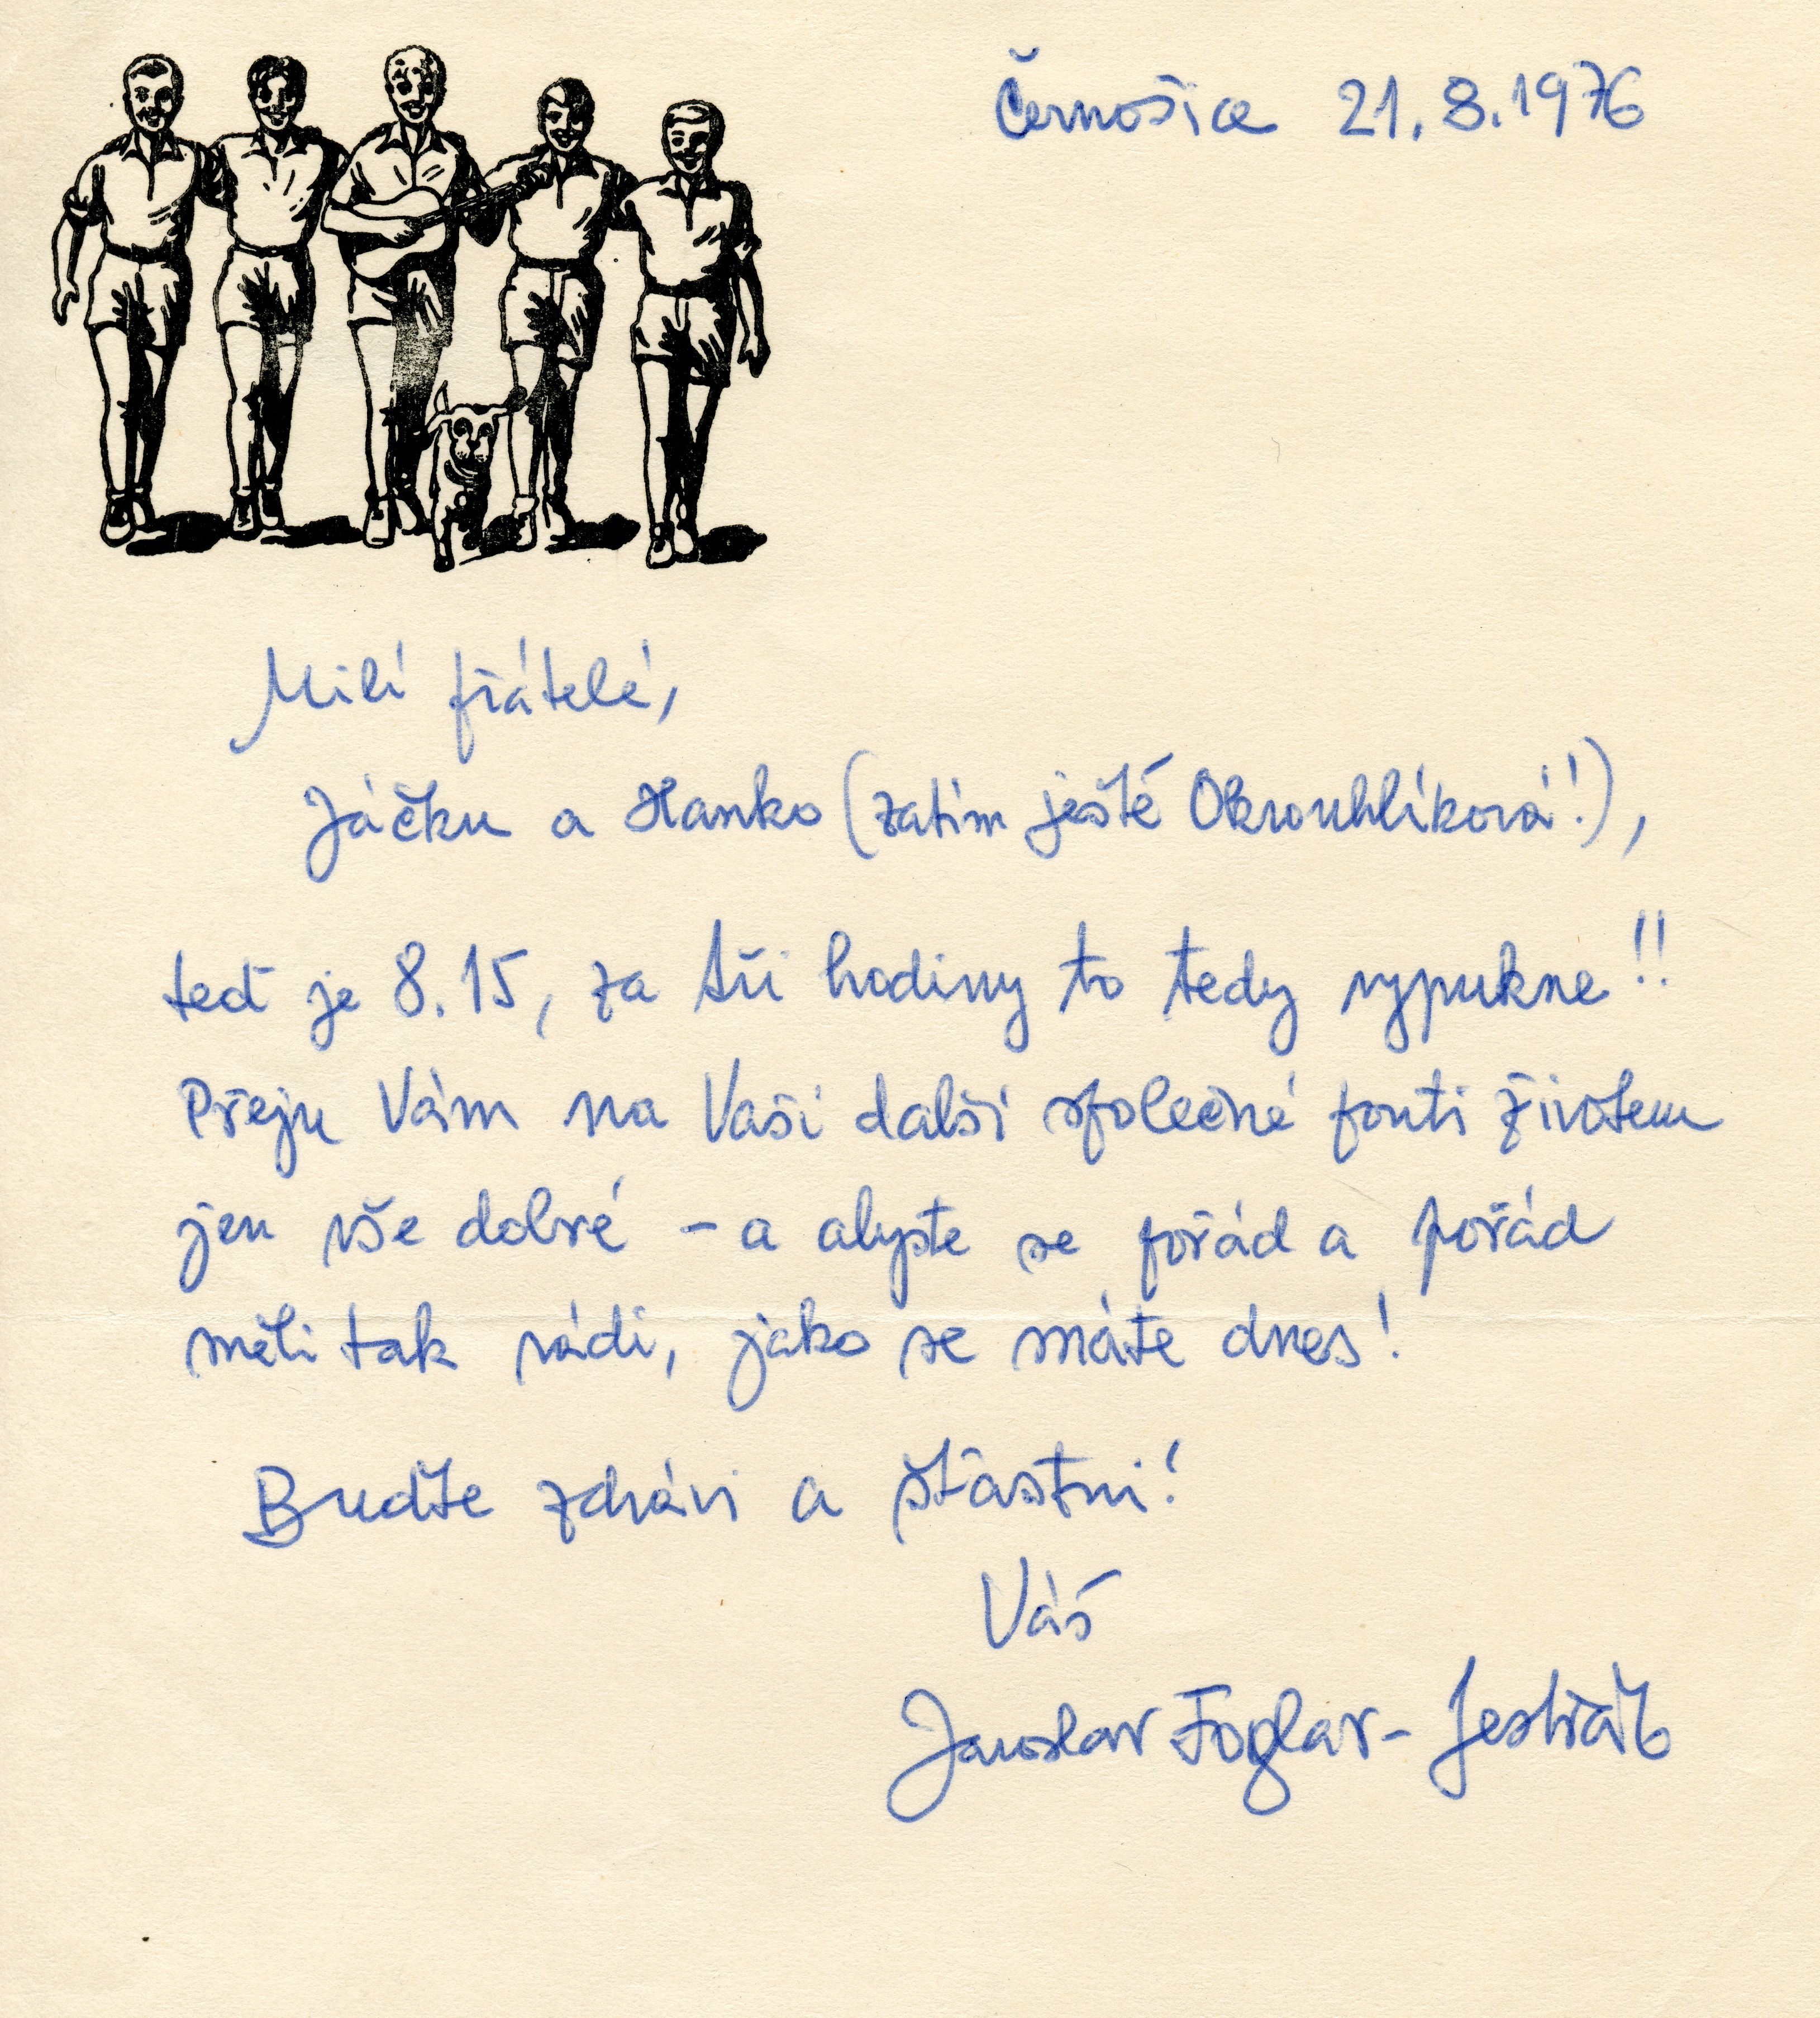 Černošice 21.8.1976
Milí přátelé,
Jáčku a Hanko (zatím ještě Okrouhlíková!),
teď je 8.15, za tři hodiny to tedy vypukne!!
Přeju Vám na Vaší další společné pouti životem
jen vše dobré – a abyste se pořád a pořád
měli tak rádi, jako se máte dnes!
Buďte zdrávi a šťastni!
Váš
Jaroslav Foglar – Jestřáb